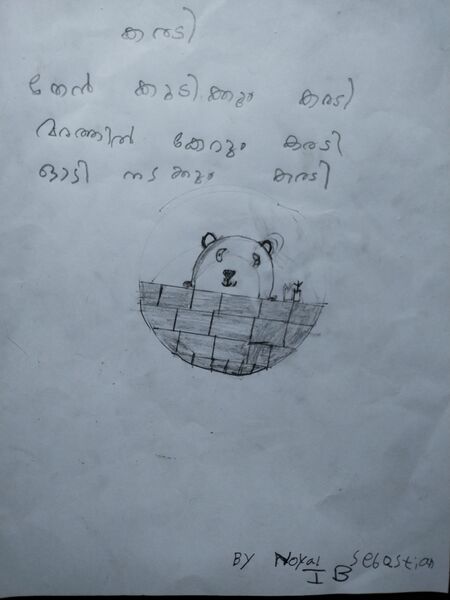 കരടി
തേൻ കുടിക്കും കരടി
മരത്തിൽ കേറും കരടി
ഓടി നടക്കും കരടി
BY Noyal Sebastian
I B